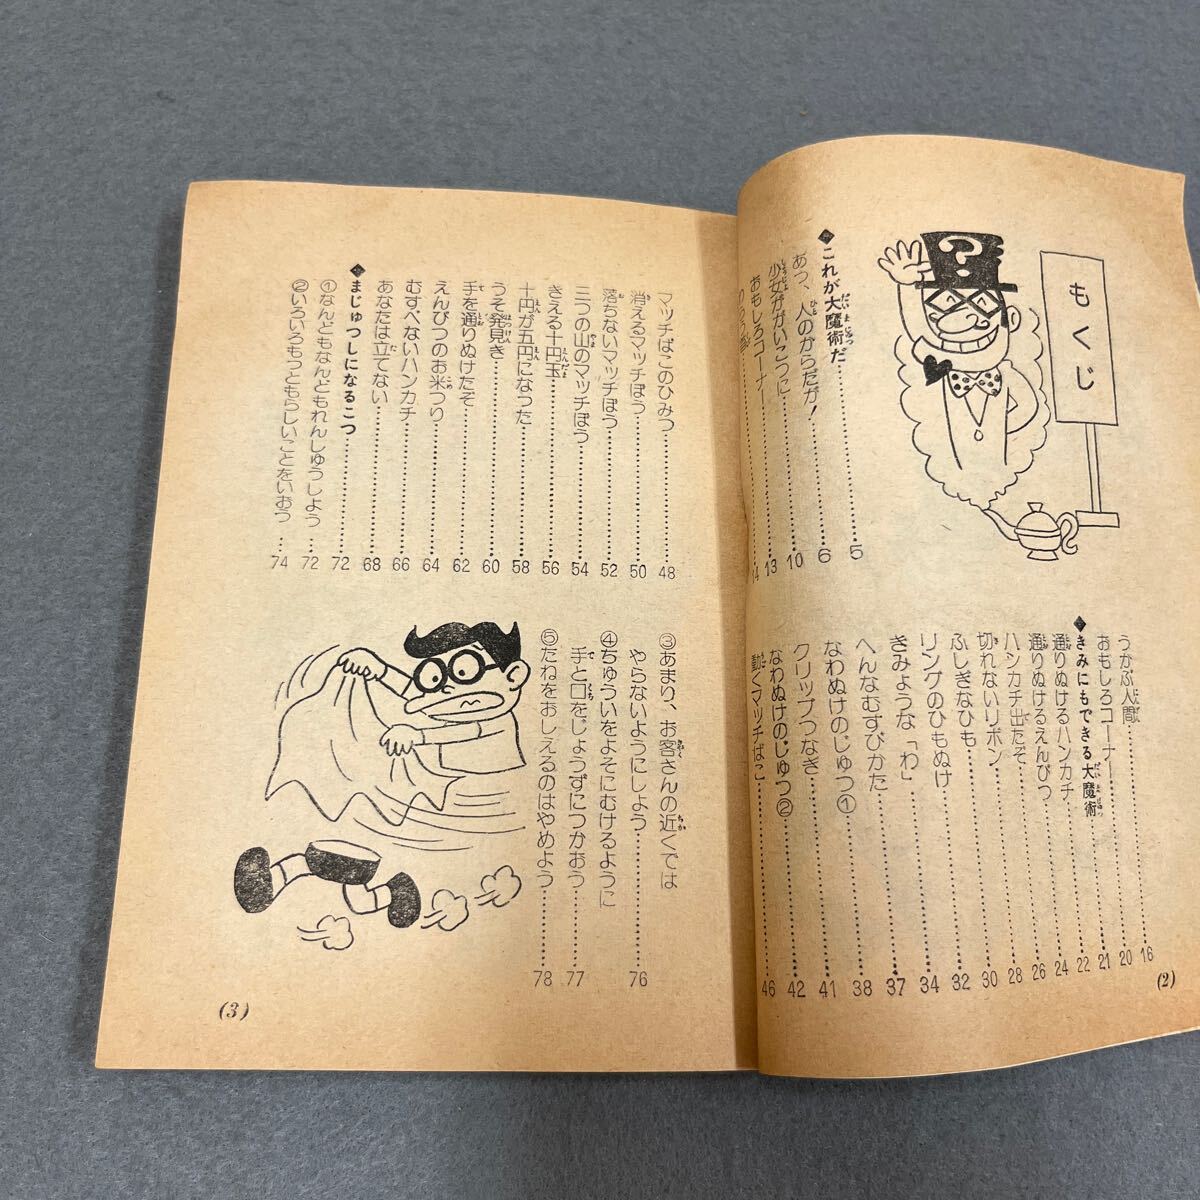 もくじ
◆これが大魔術だ……5
あっ、人のからだが!……6
少女ががいこつに……10
おもしろコーナー……13
14
うかぶ人間……16
おもしろコーナー……20
◆きみにもできる大魔術……21
通りぬけるハンカチ……22
通りぬけるえんぴつ……24
ハンカチ出たぞ……26
切れないリボン……28
ふしぎなひも……30
リングのひもぬけ……32
きみような「わ」……34
へんなむすびかた……37
なわぬけのじゅつ①……38
クリップつなぎ……41
なわぬけのじゅつ②……42
動くマッチばこ……46
(2)
マッチばこのひみつ……48
消えるマッチぼう……50
落ちないマッチぼう……52
三つの山のマッチぼう……54
きえる十円玉……56
十円が五円になった……58
うそ発見き……60
手を通りぬけたぞ……62
えんぴつのお米つり……64
むすべないハンカチ……66
あなたは立てない……68
◆まじゅつしになるこつ……72
①なんどもなんどもれんしゅうしよう……72
②いろいろもっともらしいことをいおう……74
③あまり、お客さんの近くでは
やらないようにしよう……76
④ちゅういをよそにむけるように
手と口をじょうずにつかおう……77
⑤たねをおしえるのはやめよう……78
(3)